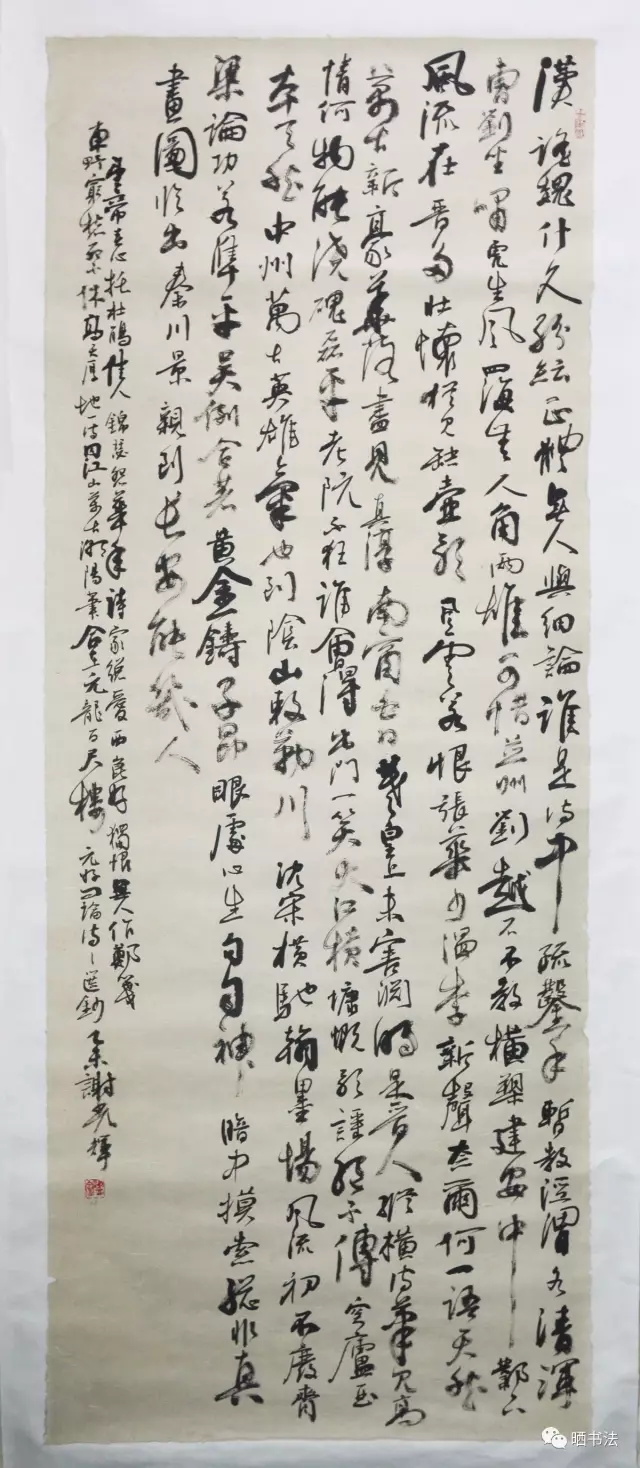 漢謠魏什久紛紜正體無人與細論誰是詩中疏鑿手暫教涇渭各清渾
曹劉坐嘯虎生風四海無人角兩雄可惜并州劉越石不教橫槊建安中鄴下
風流在晉多壯懷猶見缺壺歌風雲若恨張華少溫李新聲奈爾何一語天然
萬古新豪華落盡見真淳南窗白日羲皇上未害淵明是晉人縱橫詩筆見高
情何物能澆磈磊平老阮不狂誰會得出門一笑大江橫慷慨歌謠絕不傳穹廬一曲
本天然中州萬古英雄氣也到陰山敕勒川沈宋橫馳翰墨場風流初不廢齊
梁論功若準平吳例合著黃金鑄子昂眼處心生句句神暗中摸索總非真
畫圖臨出秦川景親到長安能幾人
望帝春心托杜鵑佳人錦瑟怨華年詩家總愛西崑好獨恨無人作鄭箋
東野窮愁死不休高天厚地一詩囚江山萬古潮陽筆合在元龍百尺樓元好問論詩詩選鈔乙未謝光輝
晒书法